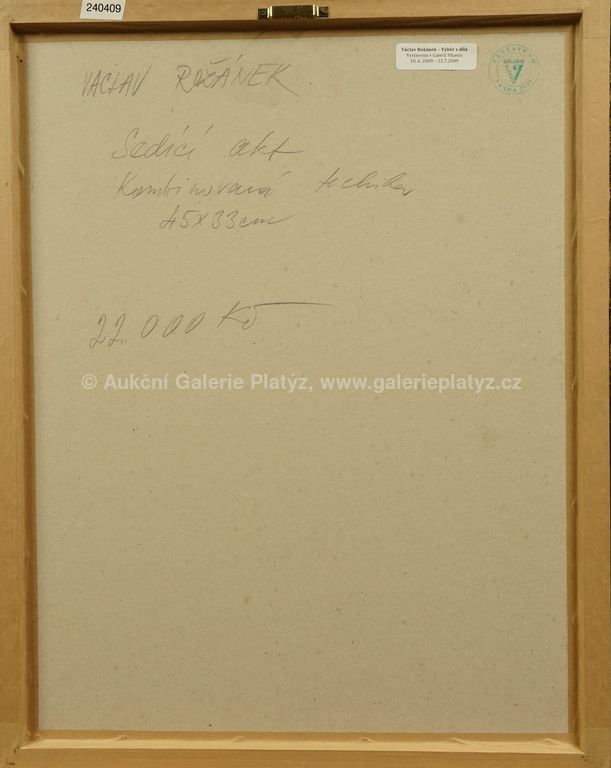 240409
Václav Rožánek - Výběr z díla
Vystaveno v Galerii Vltavín
10. 6. 2009 - 12.7.2009
VYSTAVENO
GALERIE
PRAHA
VÁCLAV ROŽÁNEK
Sedící akt
Kombinovaná technika
45x33cm
22.000 Kč
© Aukční Galerie Platýz, www.galerieplatyz.cz